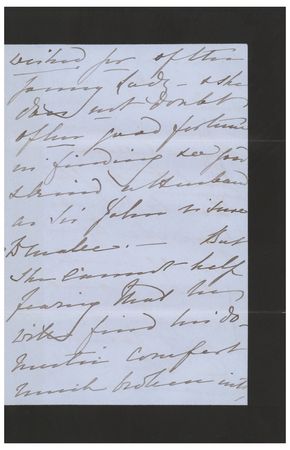 wished for of the
young Lady – & she
does not doubt
of her good fortune
in finding so good
& kind a Husband
as Sir John is sure
to make. – But
she cannot help
fearing that he
will find his do-
mestic comfort
much broken into,